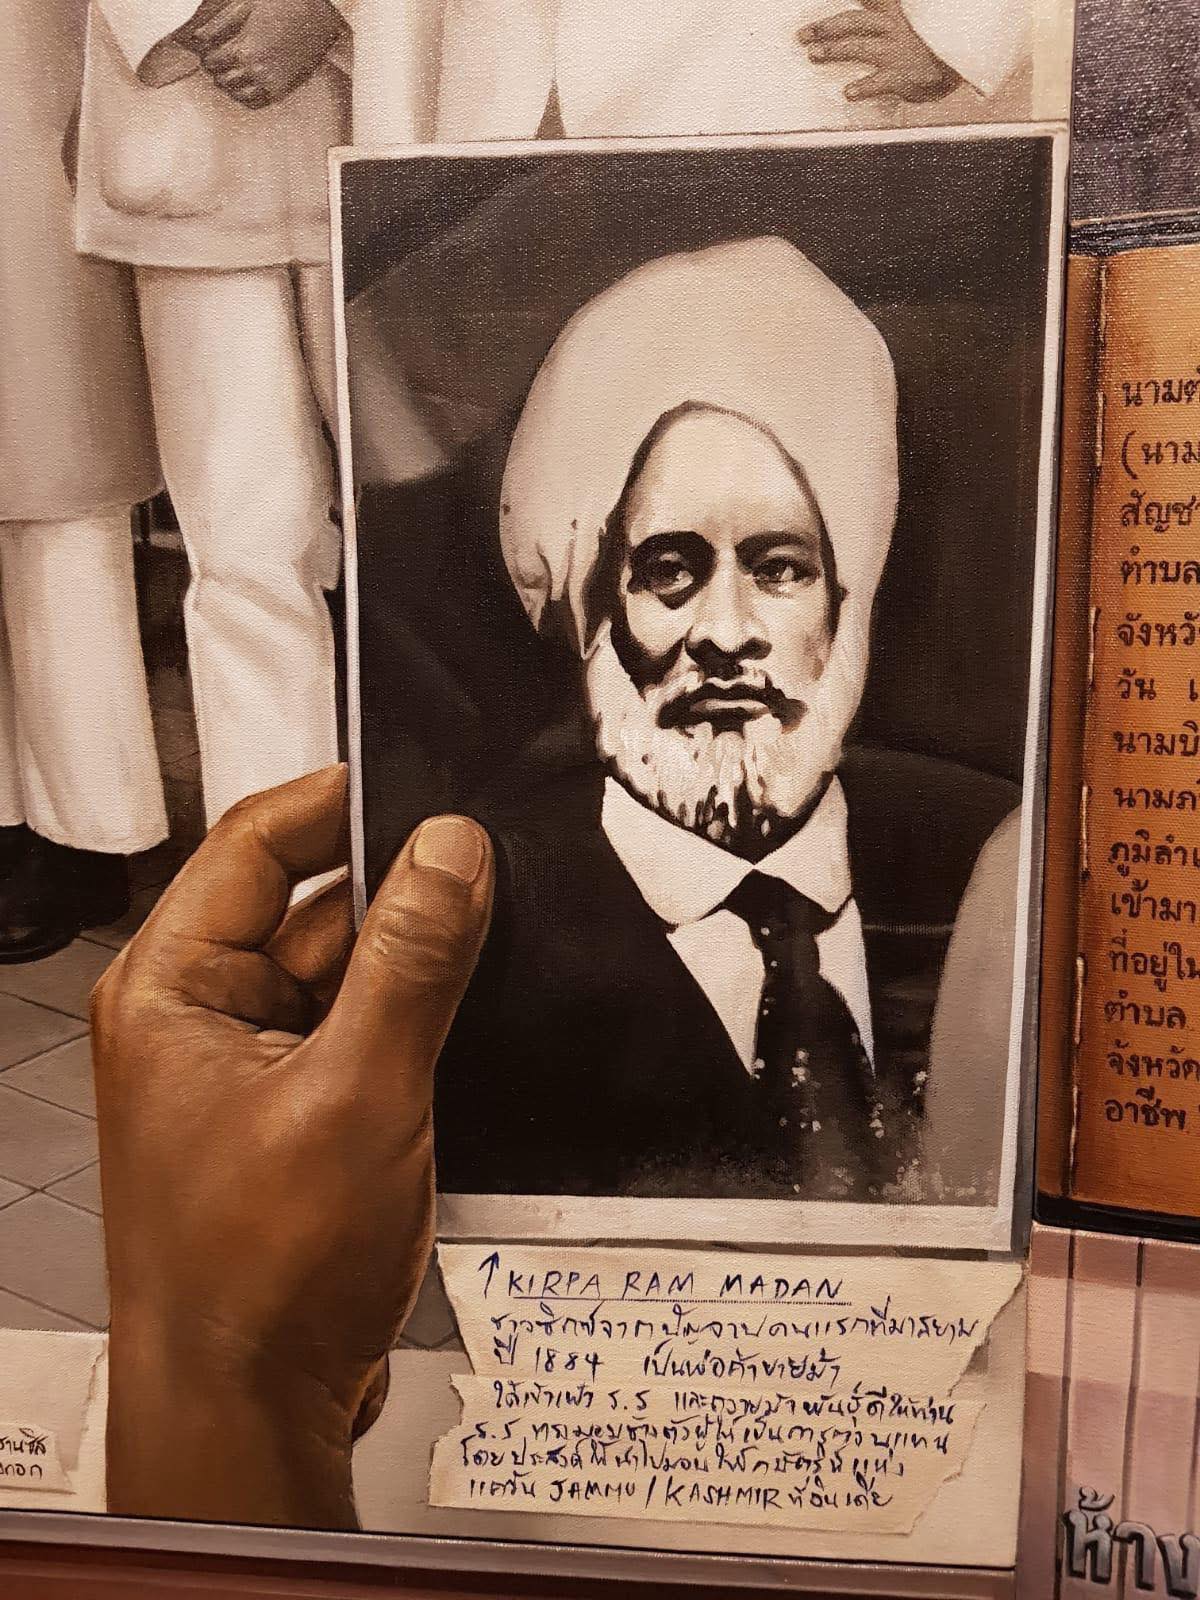 ↑ KIRPA RAM MADAN
ชาวซิกข์จากปัญจาบคนแรกที่มาสยาม
ปี 1884 เป็นพ่อค้าขายม้า
ได้เข้าเฝ้า ร.5 และถวายม้าพันธุ์ดีให้ท่าน
ร.5 ทรงมอบช้างตัวผู้ให้เป็นการตอบแทน
โดยประสงค์ให้นำไปมอบให้กษัตริย์แห่ง
แคว้น JAMMU / KASHMIR ที่อินเดีย
นามต
(นาม
สัญชา
ตำบล
จังหวั
วัน เ
นามบิ
นามภ
ภูมิลำเ
เข้ามา
ที่อยู่ใน
ตำบล
จังหวัด
อาชีพ
ห้าง